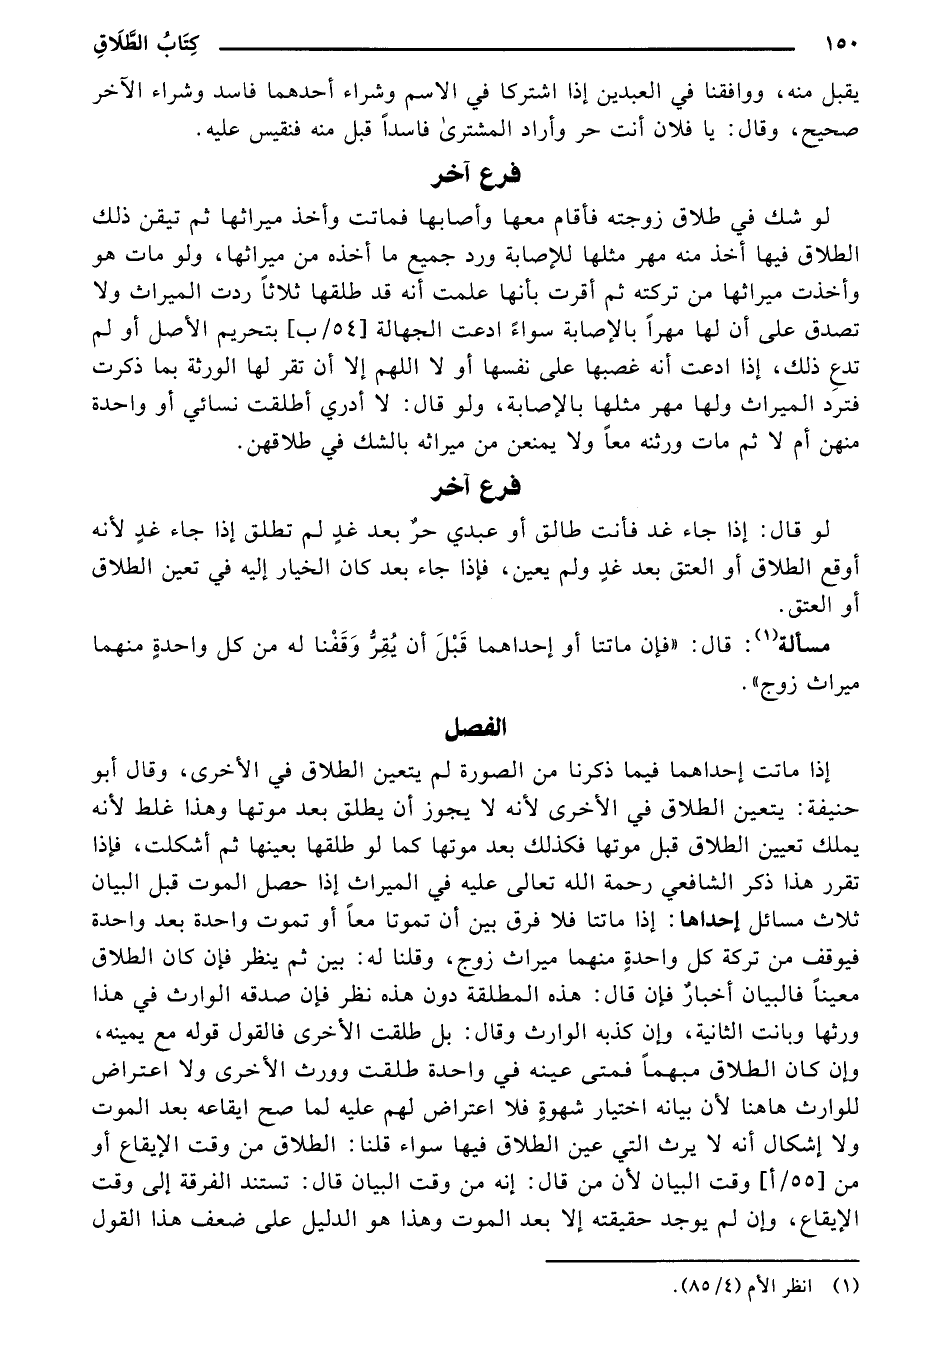 ١٥٠ كِتَابُ الطَّلَاقِ
يقبل منه، ووافقنا في العبدين إذا اشتركا في الاسم وشراء أحدهما فاسد وشراء الآخر
صحيح، وقال: يا فلان أنت حر وأراد المشترىٰ فاسداً قبل منه فنقيس عليه.
فرع آخر
لو شك في طلاق زوجته فأقام معها وأصابها فماتت وأخذ ميراثها ثم تيقن ذلك
الطلاق فيها أخذ منه مهر مثلها للإصابة ورد جميع ما أخذه من ميراثها، ولو مات هو
وأخذت ميراثها من تركته ثم أقرت بأنها علمت أنه قد طلقها ثلاثاً ردت الميراث ولا
تصدق على أن لها مهراً بالإصابة سواءً ادعت الجهالة [٥٤/ب] بتحريم الأصل أو لم
تدعِ ذلك، إذا ادعت أنه غصبها على نفسها أو لا اللهم إلا أن تقر لها الورثة بما ذكرت
فترد الميراث ولها مهر مثلها بالإصابة، ولو قال: لا أدري أطلقت نسائي أو واحدة
منهن أم لا ثم مات ورثنه معاً ولا يمنعن من ميراثه بالشك في طلاقهن.
فرع آخر
لو قال: إذا جاء غد فأنت طالق أو عبدي حرٌ بعد غدٍ لم تطلق إذا جاء غدٍ لأنه
أوقع الطلاق أو العتق بعد غدٍ ولم يعين، فإذا جاء بعد كان الخيار إليه في تعين الطلاق
أو العتق.
مسألة(١): قال: «فإن ماتتا أو إحداهما قَبْلَ أن يُقِرُّ وَقَفْنا له من كل واحدةٍ منهما
ميراث زوج».
الفصل
إذا ماتت إحداهما فيما ذكرنا من الصورة لم يتعين الطلاق في الأخرى، وقال أبو
حنيفة: يتعين الطلاق في الأخرى لأنه لا يجوز أن يطلق بعد موتها وهذا غلط لأنه
يملك تعيين الطلاق قبل موتها فكذلك بعد موتها كما لو طلقها بعينها ثم أشكلت، فإذا
تقرر هذا ذكر الشافعي رحمة الله تعالى عليه في الميراث إذا حصل الموت قبل البيان
ثلاث مسائل إحداها: إذا ماتتا فلا فرق بين أن تموتا معاً أو تموت واحدة بعد واحدة
فيوقف من تركة كل واحدةٍ منهما ميراث زوج، وقلنا له: بين ثم ينظر فإن كان الطلاق
معيناً فالبيان أخبارٌ فإن قال: هذه المطلقة دون هذه نظر فإن صدقه الوارث في هذا
ورثها وبانت الثانية، وإن كذبه الوارث وقال: بل طلقت الأخرى فالقول قوله مع يمينه،
وإن كان الطلاق مبهماً فمتى عينه في واحدة طلقت وورث الأخرى ولا اعتراض
للوارث هاهنا لأن بيانه اختيار شهوةٍ فلا اعتراض لهم عليه لما صح ايقاعه بعد الموت
ولا إشكال أنه لا يرث التي عين الطلاق فيها سواء قلنا: الطلاق من وقت الإيقاع أو
من [٥٥/أ] وقت البيان لأن من قال: إنه من وقت البيان قال: تستند الفرقة إلى وقت
الإيقاع، وإن لم يوجد حقيقته إلا بعد الموت وهذا هو الدليل على ضعف هذا القول
(١) انظر الأم (٤/ ٨٥).